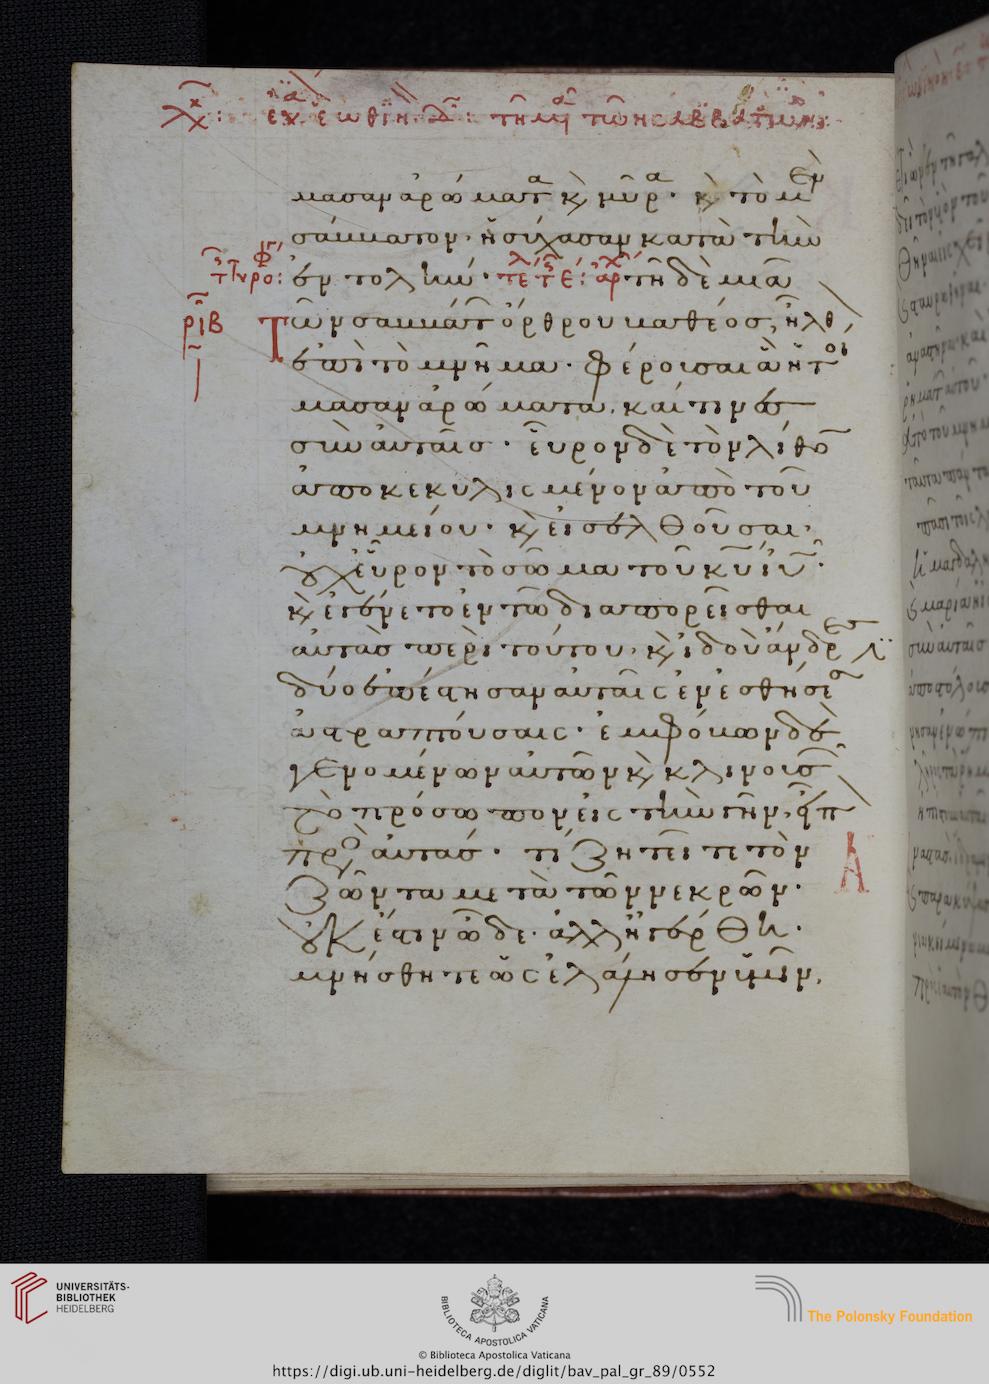 μασαν ἀρώματα κ̀ μύρα· κ̀ τὸ μὲν
σάββατον, ἡσύχασαν κατὰ τὴν
ἐντολήν· τε τε: αρχ τῆ δὲ μιᾶ
Τῶν σαββάτ ὄρθρου βαθέος, ἦλθ
ἐπὶ τὸ μνῆμα· φέρουσαι ἃ ἡτοί
μασαν ἀρώματα, καί τινες
σὺν αὐταῖς· εὗρον δὲ τὸν λίθο
ἀποκεκυλισμένον ἀπὸ τοῦ
μνημείου· κ̀ εἰσελθοῦσαι,
οὐχ εὗρον τὸ σῶμα τοῦ κυ ιυ·
κ̀ ἐγένετο ἐν τῶ διαπορεῖσθαι
αὐτὰς περὶ τούτου, κ̀ ἰδοὺ ἄνδρες
δύο ἐπέστησαν αὐταῖς ἐν ἐσθήσε
ἀστραπτούσαις· ἐμφόβων δὲ
γενομένων αὐτῶν κ̀ κλινουσ
τὸ πρόσωπον εἰς τὴν γῆν, εἶπ
πρὸ αὐτάς· τί ζητεῖτε τὸν
ζῶντα μετὰ τῶν νεκρῶν·
οὐκ ἔστιν ὧδε· ἀλλ' ἠγέρθη·
μνήσθητε ὡς ἐλάλησεν ὑμῖν,
ριβ
Α
UNIVERSITÄTS-
BIBLIOTHEK
HEIDELBERG
BIBLIOTECA APOSTOLICA VATICANA
The Polonsky Foundation
© Biblioteca Apostolica Vaticana
https://digi.ub.uni-heidelberg.de/diglit/bav_pal_gr_89/0552